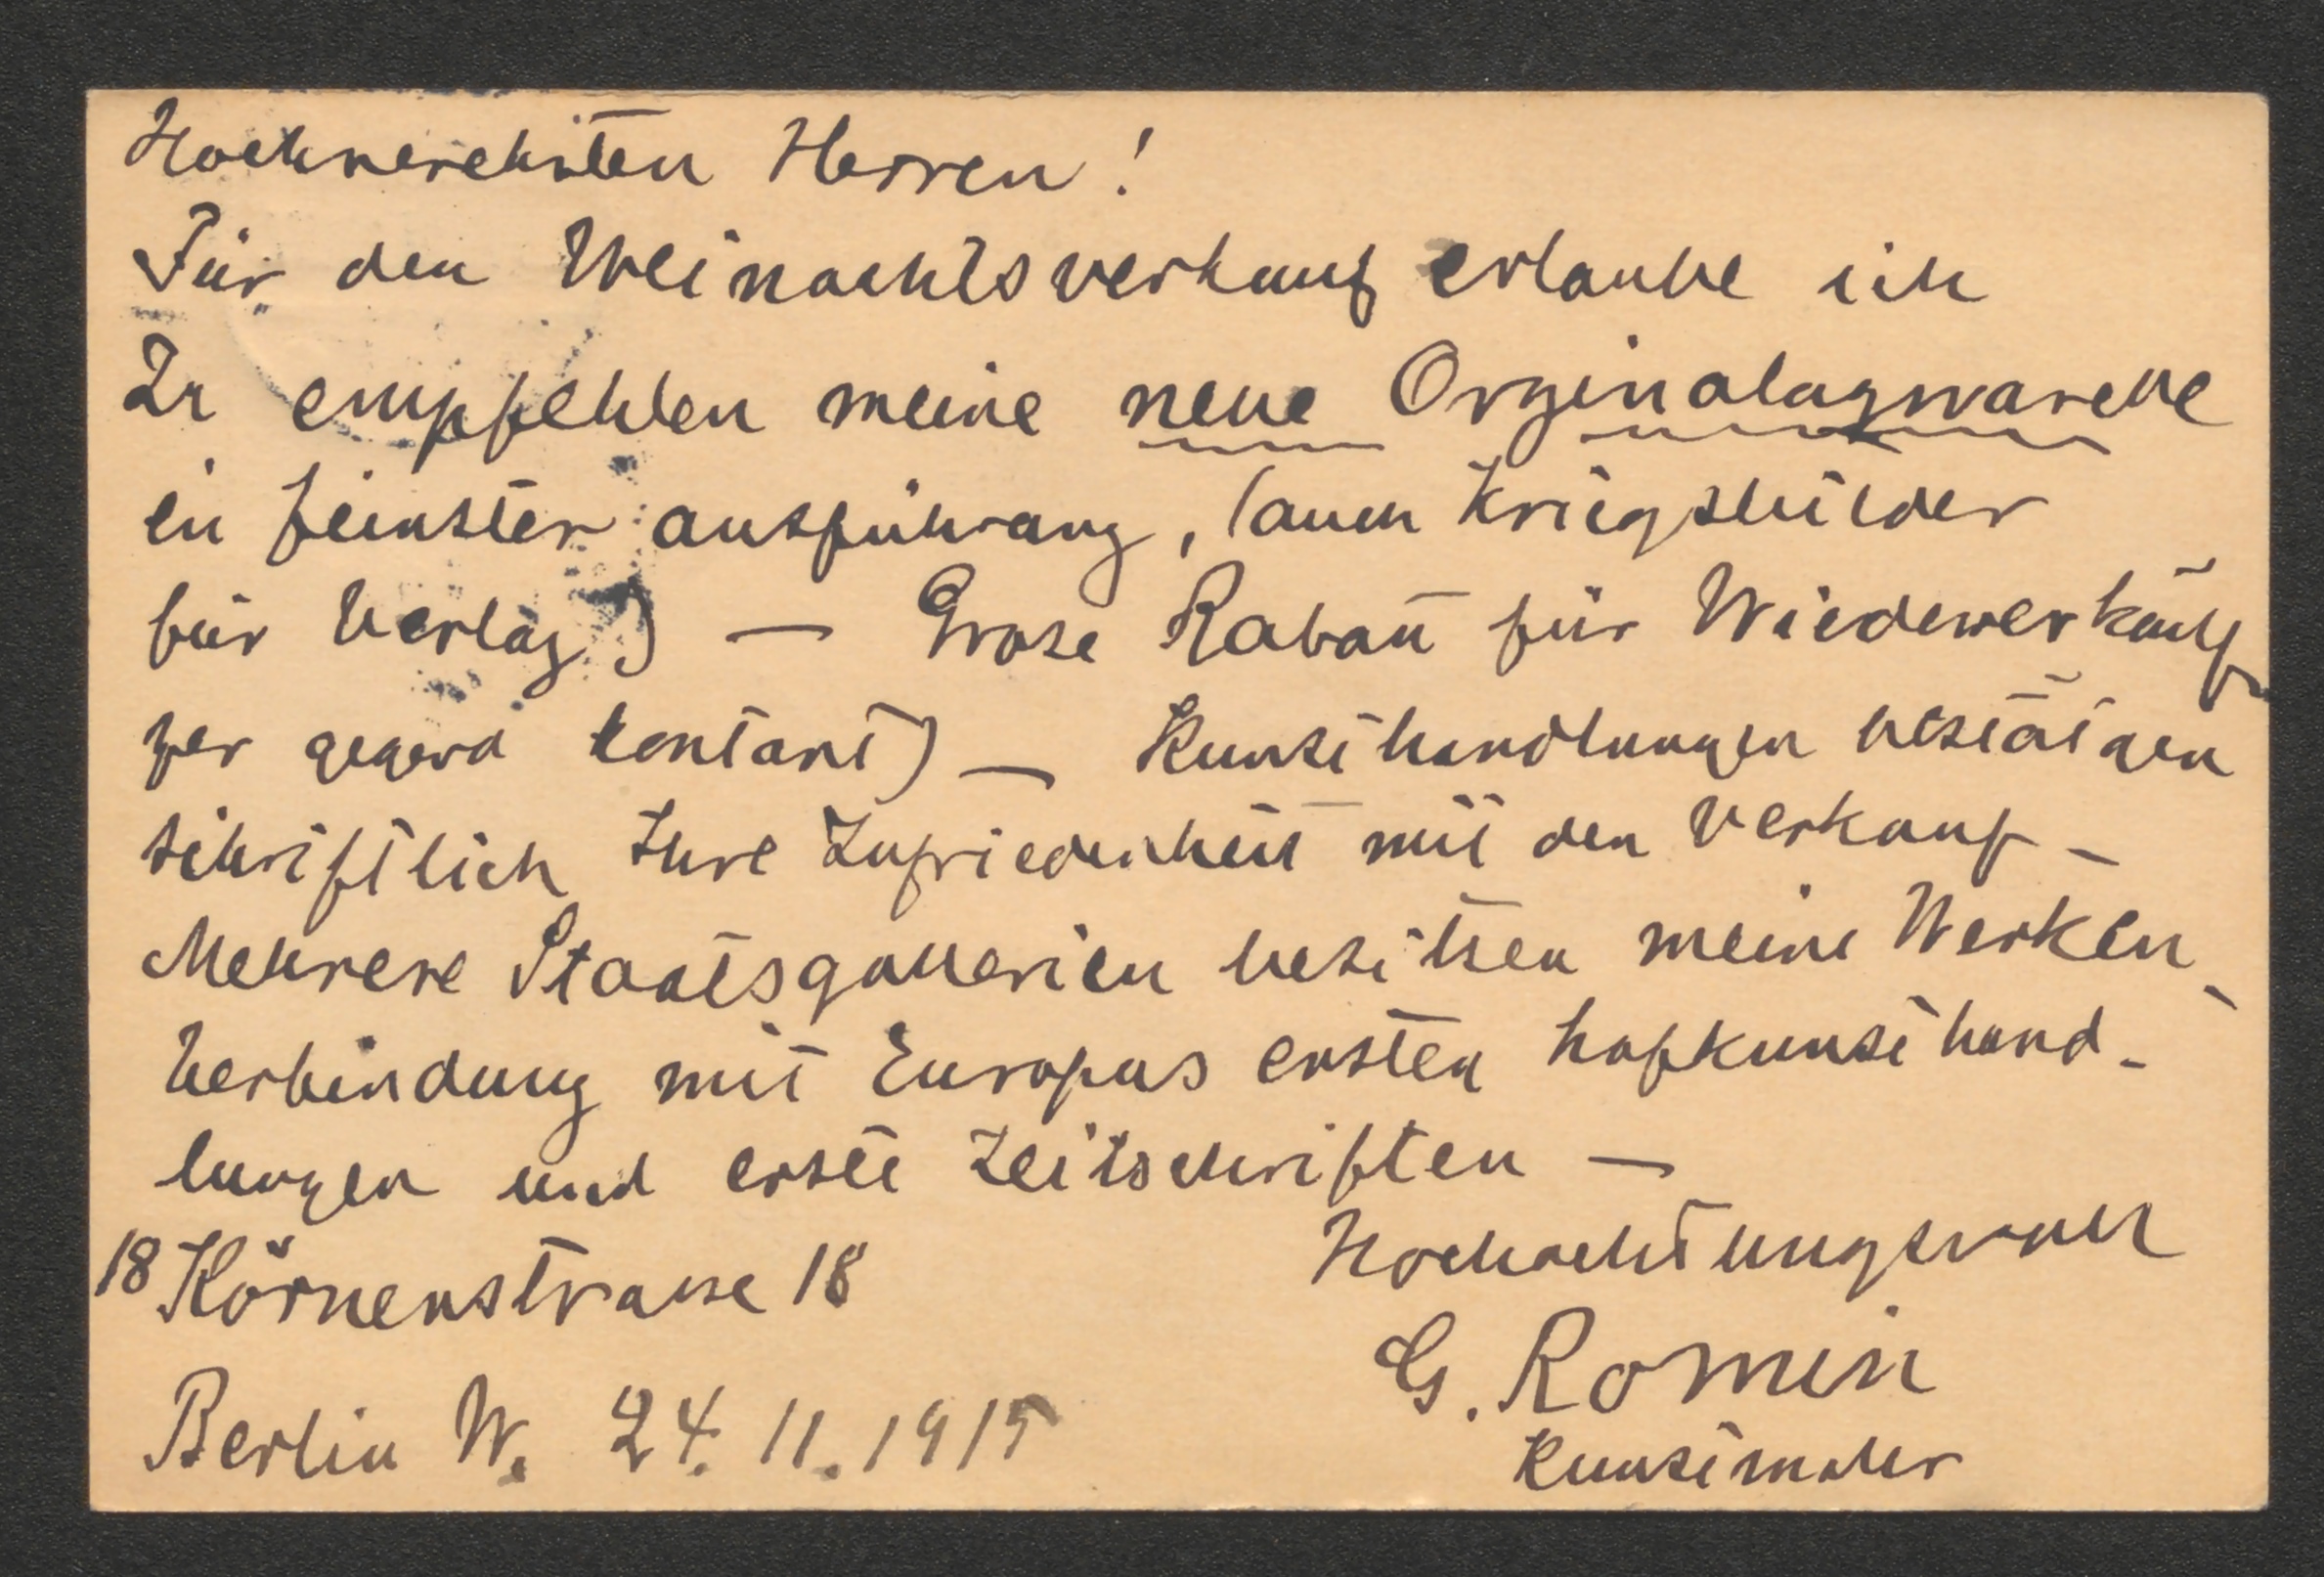 Hochverehrten Herren!
Für den Weinachtsverkauf erlaube ich
Zu empfehlen meine neue Orginalaqwarelle
in feinster ausführung, (auch Kriegsbilder
für Verlag) — Grose Rabatt für Wiederverkäuf
per kontant) — Kunsthandlungen bestätigen
schriftlich Ihre Zufriedenheit mit den Verkauf —
Mehrere Staatsgallerien besitzen meine Werken
Verbindung mit Europas ersten hofkunsthand-
lungen und erste Zeitschriften —
Hochachtungsvoll
18 Körnerstrasse 18
G. Romin
Kunstmaler
Berlin W. 24. 11. 1915